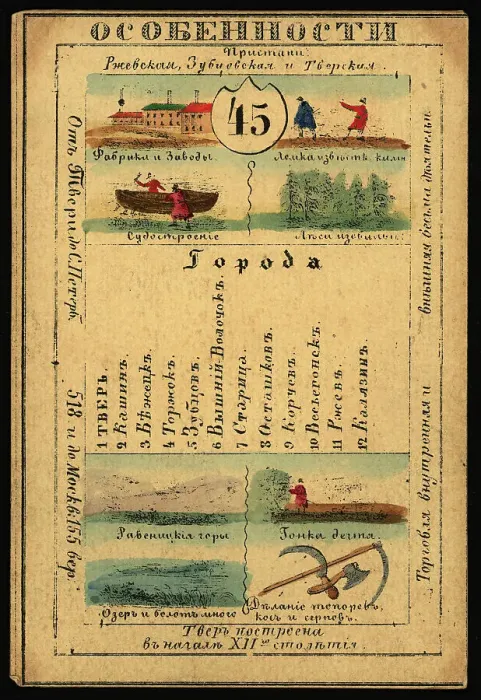 ОСОБЕННОСТИ
Пристани:
Ржевская, Зубцовская и Тверская.
45
Фабрики и Заводы.
Ломка извѣстк. камн
Судостроеніе
Лѣса изобильн:
Отъ Твери до С. Петерб.
518 и до Москв. 155 вер.
Торговля внутренная и
внѣшняя весьма дѣятельн
Города
1 ТВЕРЬ.
2 Кашинъ.
3 Бѣжецкъ.
4 Торжокъ.
5 Зубцовъ.
6 Вышній-Волочокъ.
7 Старица.
8 Осташковъ.
9 Корчевъ.
10 Весьегонскъ.
11 Ржевъ.
12 Калязинъ.
Равеницкія горы
Гонка дегтя.
Озеръ и болотъ много
Дѣланіе топоровъ,
косъ и серповъ.
Тверь построена
въ началѣ XII го столѣтія.